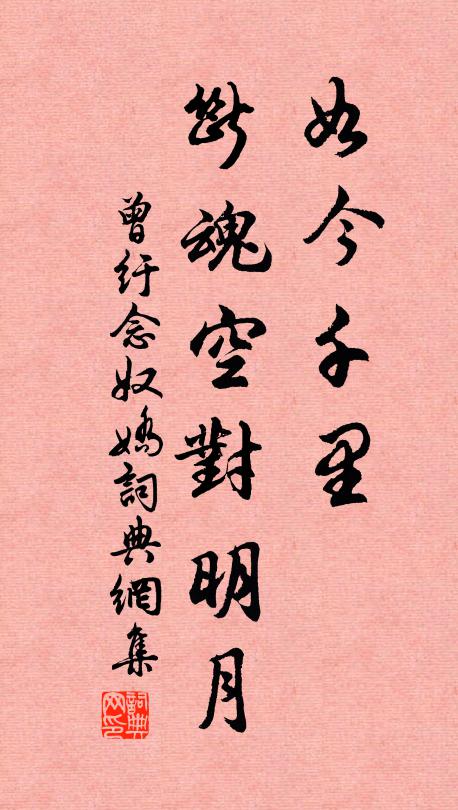 如今千里
斷魂空對明月
曾紆念奴嬌詞典網集
詞典网印